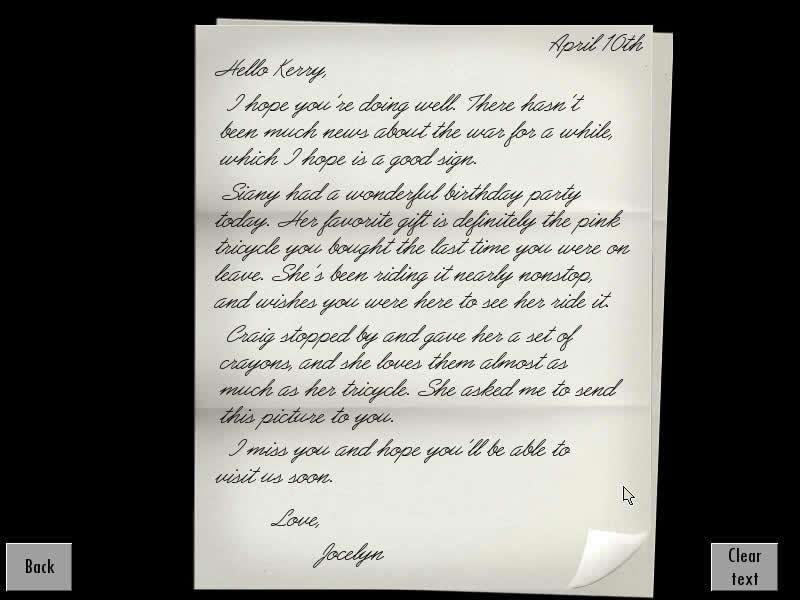 April 10th
Hello Kerry,
I hope you're doing well. There hasn't
been much news about the war for a while,
which I hope is a good sign.
Siany had a wonderful birthday party
today. Her favorite gift is definitely the pink
tricycle you bought the last time you were on
leave. She's been riding it nearly nonstop,
and wishes you were here to see her ride it.
Craig stopped by and gave her a set of
crayons, and she loves them almost as
much as her tricycle. She asked me to send
this picture to you.
I miss you and hope you'll be able to
visit us soon.
Love,
Jocelyn
Back
Clear
text